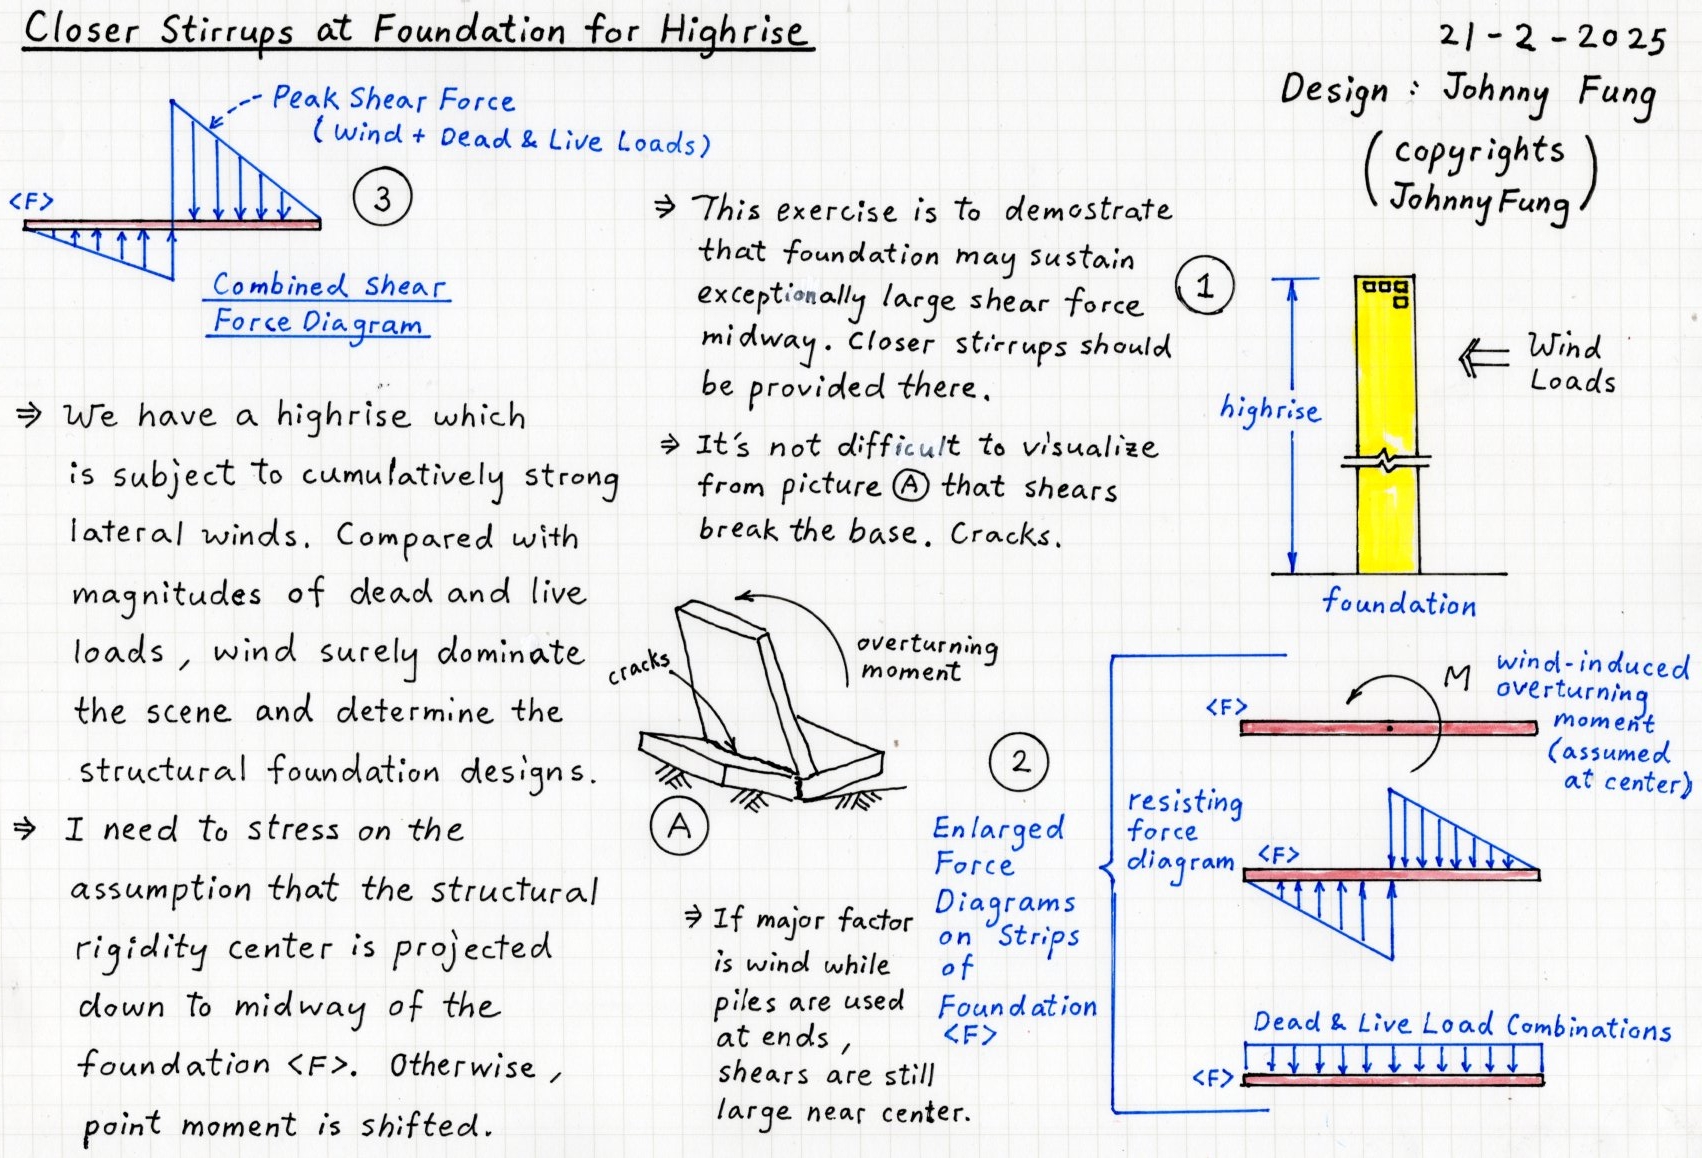 Closer Stirrups at Foundation for Highrise
21-2-2025
Design : Johnny Fung
(copyrights
Johnny Fung)
Peak Shear Force
(Wind + Dead & Live Loads)
<F>
3
Combined Shear
Force Diagram
⇒ We have a highrise which
is subject to cumulatively strong
lateral winds. Compared with
magnitudes of dead and live
loads, wind surely dominate
the scene and determine the
structural foundation designs.
⇒ I need to stress on the
assumption that the structural
rigidity center is projected
down to midway of the
foundation <F>. Otherwise,
point moment is shifted.
⇒ This exercise is to demostrate
that foundation may sustain
exceptionally large shear force
midway. Closer stirrups should
be provided there.
⇒ It's not difficult to visualize
from picture A that shears
break the base. Cracks.
cracks
overturning
moment
A
⇒ If major factor
is wind while
piles are used
at ends,
shears are still
large near center.
1
highrise
Wind
Loads
foundation
2
Enlarged
Force
Diagrams
on Strips
of
Foundation
<F>
<F>
M
wind-induced
overturning
moment
(assumed
at center)
resisting
force
diagram
<F>
Dead & Live Load Combinations
<F>